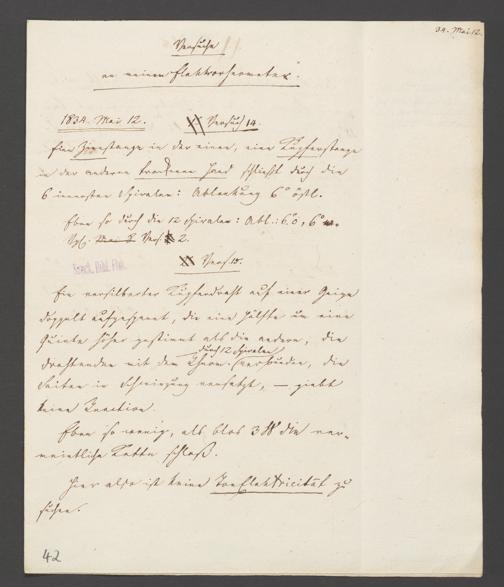 34. Mai 12.
Versuche
an meinem Elektrorheometer.
1834. Mai 12. Versuch 14.
Eine Zinnstange in der einen, eine Kupferstange
in der anderen trockenen Hand schließt durch die
6 innersten Spiralen: Ablenkung 6° östl.
Eben so durch die 12 Spiralen: Abl.: 6°, 6°
Vgl. Mai 8 Vers. 2.
Vers. 15.
Ein versilberter Kupferdraht auf einer Geige
doppelt aufgespannt, die eine Hälfte um eine
Quinte höher gestimmt als die andere, die
Drahtenden mit dem Rheom. (durch 12 Spiralen) verbunden, die
Saiten in Schwingung versetzt, — giebt
keine Reaction.
Eben so wenig, als blos die ver-
meintliche Kette schloß.
Hier also ist keine Tonelektricität zu
suchen.
42